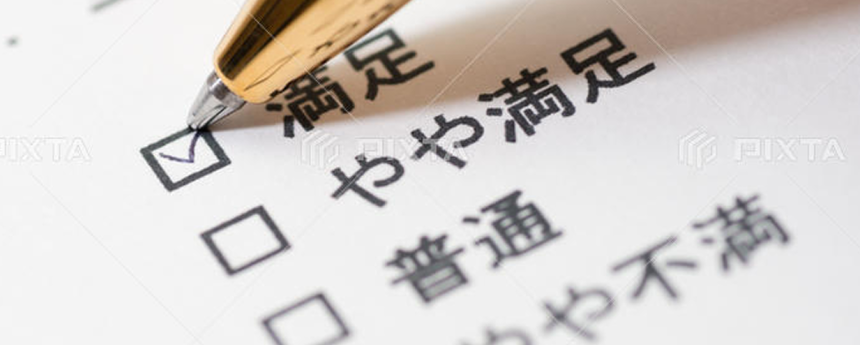 満足
やや満足
普通
やや不満
PIXTA
PIXTA
PIXTA